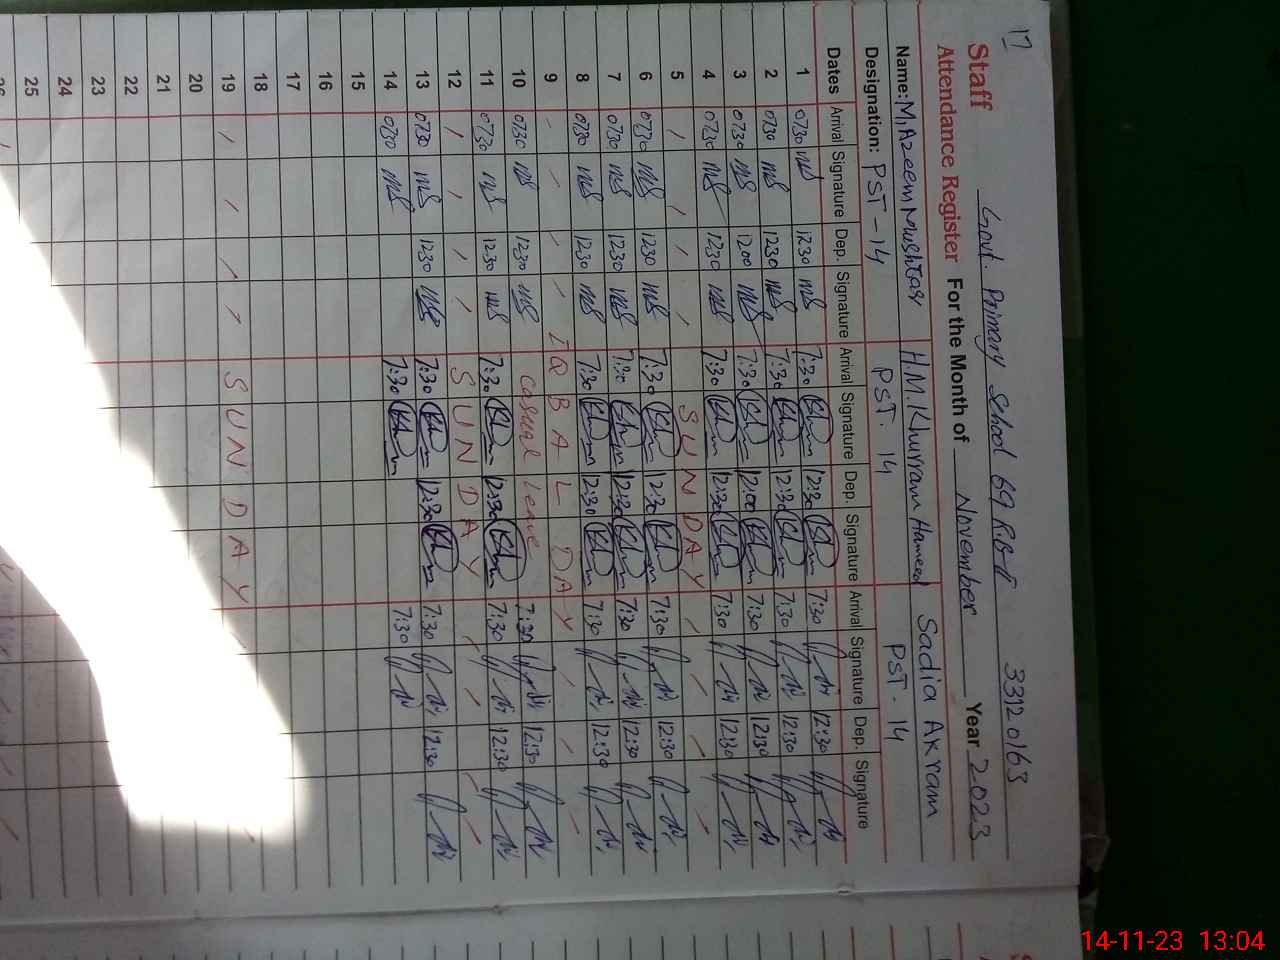 17
Staff Govt. Primary School 69 R.B-I 33120163
Attendance Register For the Month of November Year 2023
Name: M.Azeem Mushtaq H.M.Khurram Hameed Sadia Akram
Designation: PST-14 PST. 14 PST. 14
Dates Arrival Signature Dep. Signature Arrival Signature Dep. Signature Arrival Signature Dep. Signature
1 0730 1230 7:30 12:30 7:30 12:30
2 0730 1230 7:30 12:30 7:30 12:30
3 0730 1200 7:30 12:00 7:30 12:30
4 0730 1230 7:30 12:30 7:30 12:30
5 SUNDAY
6 0730 1230 7:30 12:30 7:30 12:30
7 0730 1230 7:30 12:30 7:30 12:30
8 0730 1230 7:30 12:30 7:30 12:30
9 IQBAL DAY
10 0730 1230 Casual Leave 7:30 12:30
11 0730 1230 7:30 12:30 7:30 12:30
12 SUNDAY
13 0730 1230 7:30 12:30 7:30 12:30
14 0730 7:30 7:30
15
16
17
18
19 SUNDAY
20
21
22
23
24
25
26
14-11-23 13:04